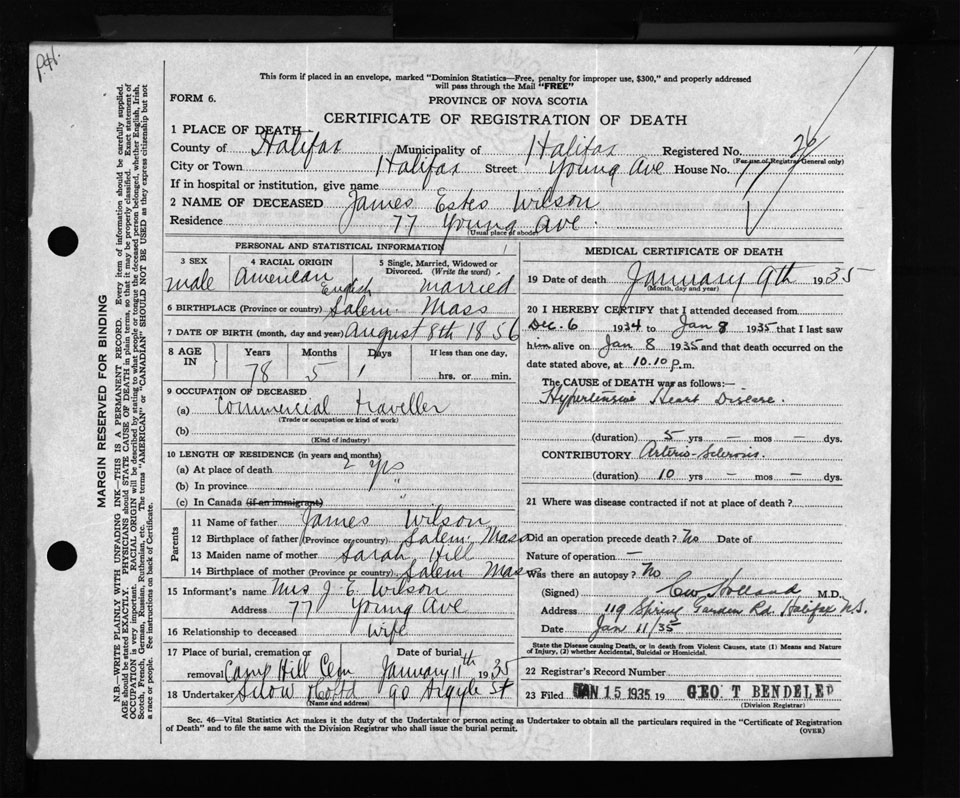 P.H.
This form if placed in an envelope, marked "Dominion Statistics—Free, penalty for improper use, $300," and properly addressed
will pass through the Mail "FREE"
FORM 6.
PROVINCE OF NOVA SCOTIA
CERTIFICATE OF REGISTRATION OF DEATH
1 PLACE OF DEATH—
County of Halifax Municipality of Halifax Registered No. 26
(For use of Registrar General only)
City or Town Halifax Street Young Ave House No. 77
If in hospital or institution, give name
2 NAME OF DECEASED James Estes Wilson
Residence 77 Young Ave.
(Usual place of abode)
PERSONAL AND STATISTICAL INFORMATION
3 SEX 4 RACIAL ORIGIN 5 Single, Married, Widowed or
Divorced. (Write the word)
male American English married
6 BIRTHPLACE (Province or country) Salem Mass
7 DATE OF BIRTH (month, day and year) August 8th 1856
8 AGE IN Years Months Days If less than one day,
78 5 1 hrs. or min.
9 OCCUPATION OF DECEASED
(a) Commercial traveller
(Trade or occupation or kind of work)
(b)
(Kind of industry)
10 LENGTH OF RESIDENCE (in years and months)
(a) At place of death 2 yrs
(b) In province "
(c) In Canada (if an immigrant) "
Parents
11 Name of father James Wilson
12 Birthplace of father (Province or country) Salem Mass
13 Maiden name of mother Sarah Hill
14 Birthplace of mother (Province or country) Salem Mass
15 Informant's name Mrs J. E. Wilson
Address 77 Young Ave
16 Relationship to deceased wife
17 Place of burial, cremation or Date of burial
removal Camp Hill Cem January 11th 1935
18 Undertaker Snow & Co Ltd 90 Argyle St
(Name and address)
MEDICAL CERTIFICATE OF DEATH
19 Date of death January 9th 1935
(Month, day and year)
20 I HEREBY CERTIFY that I attended deceased from
Dec. 6 1934 to Jan 8 1935 that I last saw
him alive on Jan 8 1935 and that death occurred on the
date stated above, at 10.10 p.m.
The CAUSE OF DEATH was as follows:—
Hypertensive Heart Disease.
(duration) 5 yrs — mos — dys.
CONTRIBUTORY Arterio-Sclerosis.
(duration) 10 yrs — mos — dys.
21 Where was disease contracted if not at place of death?
Did an operation precede death? No Date of
Nature of operation —
Was there an autopsy? No
(Signed) C W Holland M.D.
Address 119 Spring Garden Rd. Halifax N.S.
Date Jan 11/35
State the Disease causing Death, or in death from Violent Causes, state (1) Means and Nature
of Injury, (2) whether Accidental, Suicidal or Homicidal.
22 Registrar's Record Number
23 Filed JAN 15 1935 19 GEO. T BENDELEP
(Division Registrar)
Sec. 46—Vital Statistics Act makes it the duty of the Undertaker or person acting as Undertaker to obtain all the particulars required in the "Certificate of Registration
of Death" and to file the same with the Division Registrar who shall issue the burial permit.
(OVER)
MARGIN RESERVED FOR BINDING
N.B.—WRITE PLAINLY WITH UNFADING INK—THIS IS A PERMANENT RECORD. Every item of information should be carefully supplied.
AGE should be stated EXACTLY. PHYSICIANS should STATE CAUSE OF DEATH in plain terms, so that it may be properly classified. Exact statement of
OCCUPATION is very important. RACIAL ORIGIN will be described by stating to what people or tongue the deceased person belonged, whether English, Irish,
Scotch, French, German, Russian, Ruthenian, etc. The terms "AMERICAN" or "CANADIAN" SHOULD NOT BE USED as they express citizenship but not
a race or people. See instructions on back of Certificate.